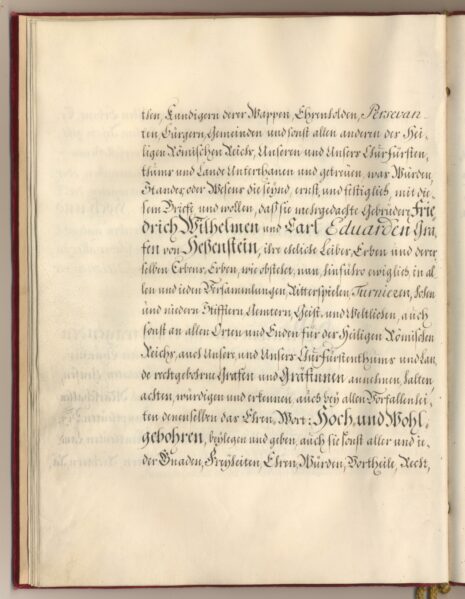 tlen, Kundigern derer Wappen, Ehrenholden, Persevan-
ten, Bürgern, Gemeinden und sonst allen anderen des Hei-
ligen Römischen Reichs, Unseren und Unsers Churfürsten-
thums und Lande Unterthanen und getreuen, was Würden,
Standes, oder Wesens die seynd, ernst, und festiglich, mit die-
sem Briefe und wollen, daß sie mehrgedachte Gebrüdere, Frie-
drich Wilhelmen und Carl Eduarden Gra-
fen von Heßenstein, ihre eheliche Leibes, Erben und derer-
selben Erbens, Erben, wie obstehet, nun hinführo ewiglich in al-
len und ieden Versammlungen, Ritterspielen, Turnieren, hohen
und niedern Stifftern Aemtern, Geist, und Weltlichen, auch
sonst an allen Orten und Enden für des Heiligen Römischen
Reichs, auch Unsere, und Unsers Churfürstenthums und Lan-
de rechtgebohrne Grafen und Gräfinnen annehmen, halten,
achten, würdigen und erkennen, auch bey allen Vorfallenhei-
ten denenselben das Ehren, Wort: Hoch, und Wohl,
gebohren, beylegen und geben, auch sie sonst aller und ie-
der Gnaden, Freyheiten, Ehren, Würden, Vortheile, Recht,